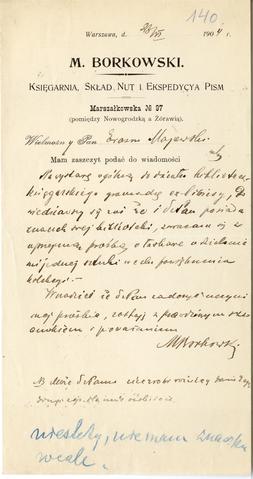 140
Warszawa, d. 28/VI 1904 r.
M. BORKOWSKI.
KSIĘGARNIA, SKŁAD NUT I EKSPEDYCYA PISM
Marszałkowska № 97
(pomiędzy Nowogrodzką a Żórawią).
Wielmożny Pan Erazm Majewski
Mam zaszczyt podać do wiadomości
Na wystawę ogólną do działu
księgarskiego gromadzę ex-librisy,
się zaś że i WPan posiada
znaczek swej biblioteki, zwracam się z
uprzejmą prośbą o łaskawe udzielenie
mi jednej sztuki w celu powiększenia
kolekcyi.
W nadziei że WPan zadość uczyni
mej prośbie, zostaję z prawdziwym szacunkiem
i poważaniem
MBorkowski
niestety, nie mam znaczka
wcale.